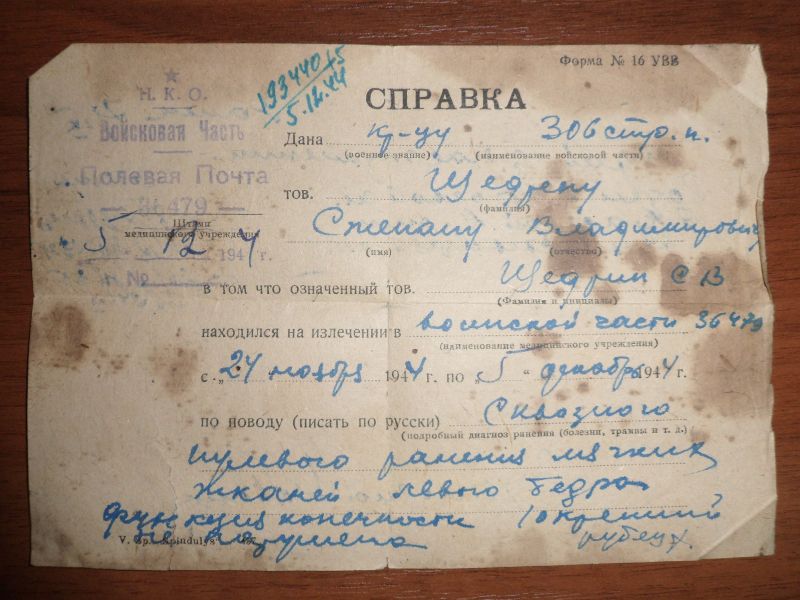 Форма № 16 УВВ
193440/5
5.12.44
★
Н. К. О.
Войсковая Часть
Полевая Почта
— 36479 —
Штамп
медицинского учреждения
5 12 1944
№
СПРАВКА
Дана кр-цу 306 стр. п.
(военное звание) (наименование войсковой части)
тов. Щедрину
(фамилия)
Степану Владимирович
(имя) (отчество)
в том что означенный тов. Щедрин С В
(Фамилия и инициалы)
находился на излечении в воинской части 36479
(наименование медицинского учреждения)
с „24 “ ноября 1944 г. по „5 “ декабря 1944 г.
по поводу (писать по русски) Сквозного
(подробный диагноз ранения (болезни, травмы и т. д.)
пулевого ранения мягких
тканей левого бедра
функция конечности /окрепший
не нарушена рубец/.
V. Sp. „Spindulys“